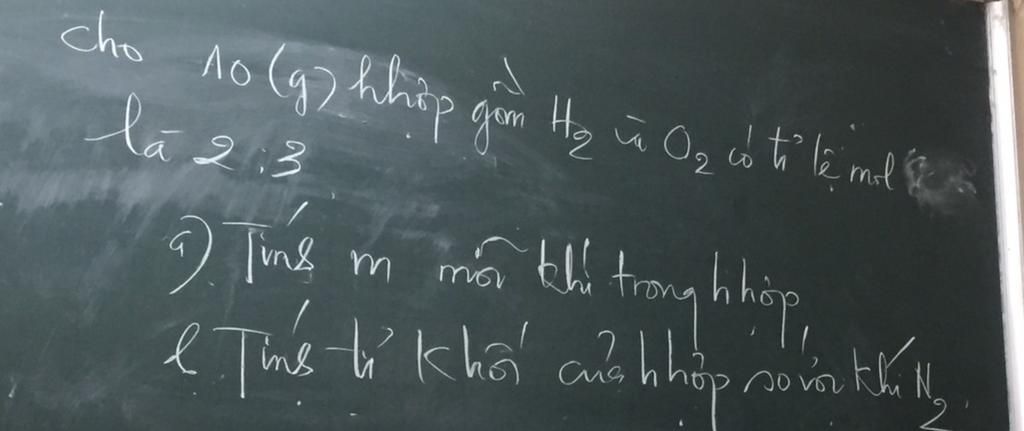 cho 10 (g) hhợp gồm H₂ và O₂ có tỉ lệ mol
là 2:3
a) Tính m mỗi khí trong hhợp
b Tính tỉ khối của hhợp so với khí N₂